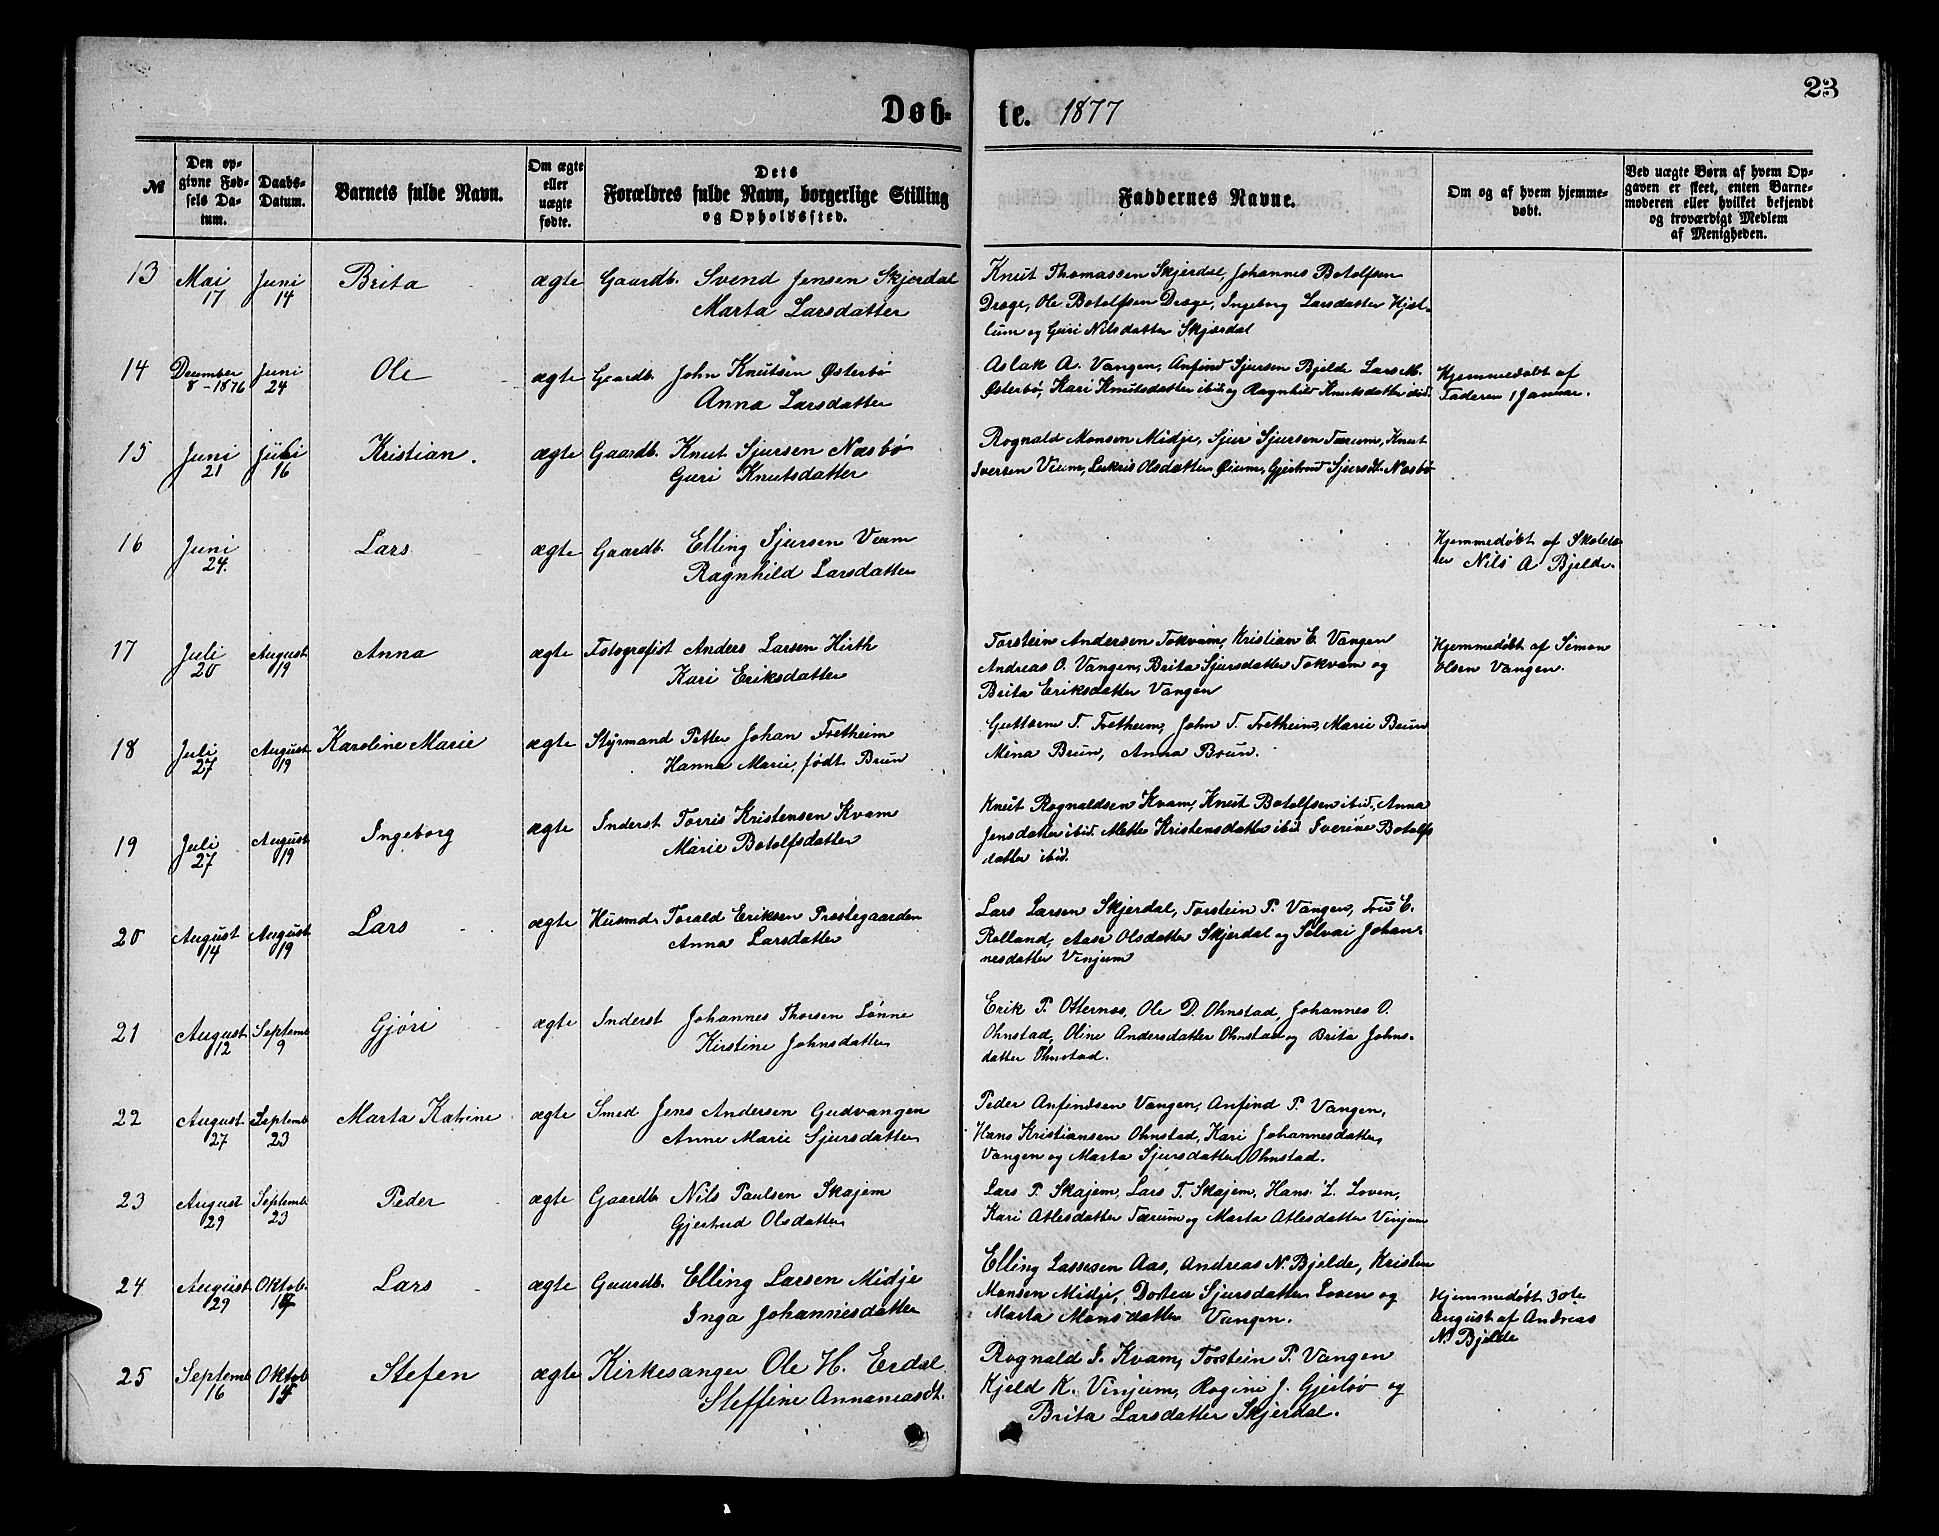 23
Døb-
te. 1877
№
Den op-
givne Fød-
sels Da-
tum.
Daabs-
Datum.
Barnets fulde Navn.
Om ægte
eller
uægte
fødte.
Dets
Forældres fulde Navn, borgerlige Stilling
og Opholdssted.
Faddernes Navne.
Om og af hvem hjemme-
døbt.
Ved uægte Børn af hvem Op-
gaven er skeet, enten Barne-
moderen eller hvilket bekjendt
og troværdigt Medlem
af Menigheden.
13 Mai 17 Juni 14 Brita ægte Gaardb. Svend Jensen Skjerdal
Marta Larsdatter
Knut Thomassen Skjerdal, Johannes Botolfsen
Drege, Ole Botolfsen Drege, Ingeborg Larsdatter Hjel-
lum og Guri Nilsdatter Skjærdal
14 December 8-1876 Juni 24 Ole ægte Gaardb. John Knutsen Østerbø
Anna Larsdatter
Aslak A. Vangen, Anfind Sjursen Bjelde Lars M.
Østerbø, Kari Knutsdatter ibid. og Ragnhild Knutsdatter ibid.
Hjemmedøbt af
Faderen 1 Januar.
15 Juni 21 Juli 16 Kristian. ægte Gaardb. Knut Sjursen Næsbø
Guri Knutsdatter
Rognald Monsen Midje, Sjur Sjursen Tærum, Knut
Iversen Vium, Lukris Olsdatter Øium, Gjertrud Sjursdt. Næsbø
16 Juni 24. Lars ægte Gaardb. Elling Sjursen Vium
Ragnhild Larsdatter
Hjemmedøbt af Skolelæ-
rer Nils A Bjelde.
17 Juli 20 August 19 Anna ægte Fotografist Anders Larsen Hirth
Kari Eriksdatter
Torstein Andersen Tokvam, Kristian E. Vangen
Andreas O. Vangen, Brita Sjursdatter Tokvam og
Brita Eriksdatter Vangen
Hjemmedøbt af Simon
Olsen Vangen.
18 Juli 27 August 19 Karoline Marie ægte Styrmand Petter Johan Fretheim
Hanna Marie, født Brun
Guttorm T. Fretheim, John T. Fretheim, Marie Brun
Mina Brun, Anna Brun.
19 Juli 27 August 19 Ingeborg ægte Inderst Torris Kristensen Kvam
Marie Botolfsdatter
Knut Rognaldsen Kvam, Knut Botolfsen ibid, Anna
Jensdatter ibid. Mette Kristensdatter ibid. Sverine Botolfs
datter ibid.
20 August 14 August 19 Lars ægte Husmd. Torald Eriksen Prestegaarden
Anna Larsdatter
Lars Larsen Skjerdal, Torstein P. Vangen, E.
Rolland, Aase Olsdatter Skjerdal og Sølvai Johan-
nesdatter Vinjum
21 August 12 Septemb 9 Gjøri ægte Inderst Johannes Thorsen Lønne
Kirstine Johnsdatter
Erik P. Otternæs, Ole D. Ohnstad, Johannes O.
Ohnstad, Oline Andersdatter Ohnstad og Brita Johns-
datter Ohnstad.
22 August 27 Septemb 23 Marta Katrine ægte Smed Jens Andersen Gudvangen
Anne Marie Sjursdatter
Peder Anfindsen Vangen, Anfind P. Vangen,
Hans Kristiansen Ohnstad, Kari Johannesdatter
Vangen og Marta Sjursdatter Ohnstad.
23 August 29 Septemb 23 Peder ægte Gaardb. Nils Paulsen Skajem
Gjertrud Olsdatter
Lars P. Skajem, Lars T. Skajem, Hans L. Loven,
Kari Atlesdatter Tærum og Marta Atlesdatter Vinjum
24 August 29 Oktob. Lars ægte Gaardb. Elling Larsen Midje
Inga Johannesdatter
Elling Lassesen Aas, Andreas N. Bjelde, Kristen
Monsen Midje, Dortea Sjursdatter Loven og
Marta Monsdatter Vangen.
Hjemmedøbt 30te
August af Andreas
N. Bjelde
25 Septemb 16 Oktob Stefen ægte Kirkesanger Ole H. Erdal
Steffine Annaniasdt.
Rognald J. Kvam, Torstein P. Vangen
Kjeld K. Vinjum, Rogine J. Gjerløv og
Brita Larsdatter Skjerdal.